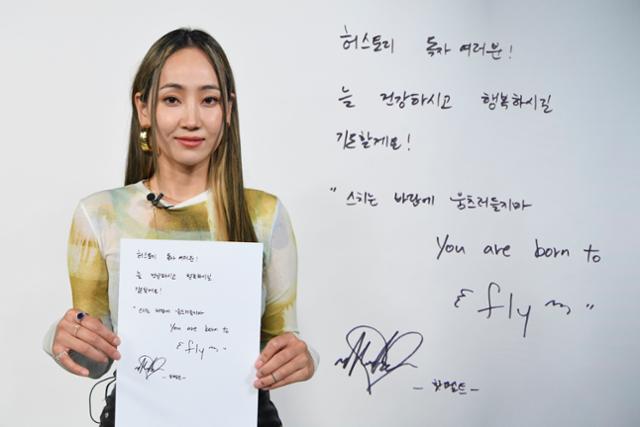 허스토리 독자 여러분!
늘 건강하시고 행복하시길
기도할게요!
"스치는 바람에 움츠러들지마
You are born to
fly"
-핫펠트-
허스토리 독자 여러분!
늘 건강하시고 행복하시길
기도할게요!
"스치는 바람에 움츠러들지마
You are born to
fly"
-핫펠트-